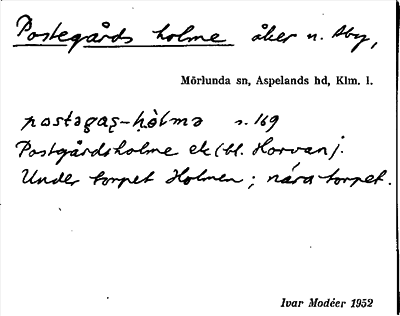 Postegårds holme åker u. Åby,
Mörlunda sn, Aspelands hd, Klm. l.
postəgaş-hòlmə s. 169
Postgårdsholme ek (bl. Horvan).
Under torpet Holmen; nära torpet.
Ivar Modéer 1952